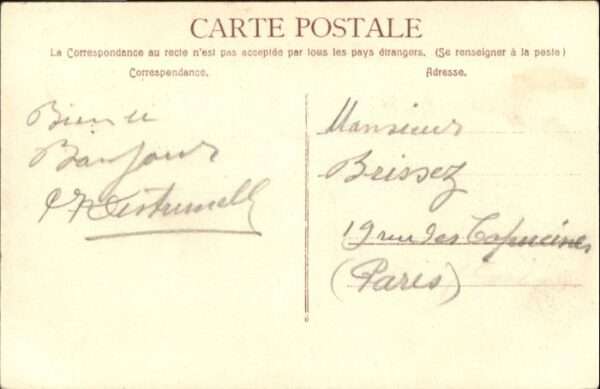 CARTE POSTALE
La Correspondance au recto n'est pas acceptée par tous les pays étrangers. (Se renseigner à la poste)
Correspondance.
Adresse.
Bien le
Bonjour
Monsieur
Brissez
19 rue des Capucines
(Paris)